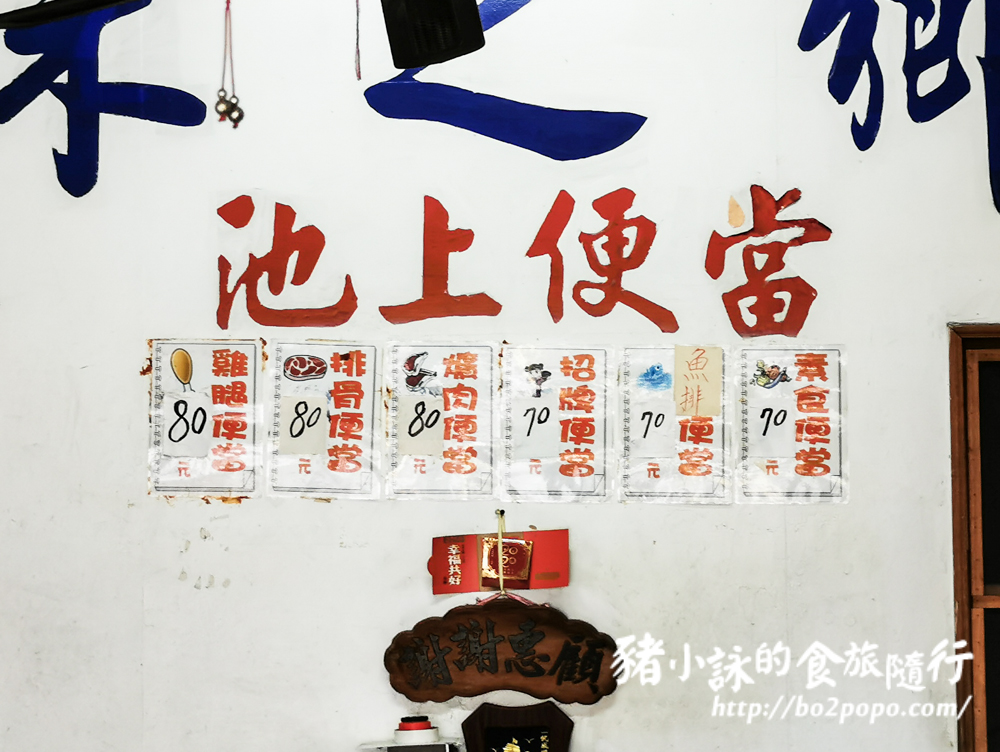 米之鄉
池上便當
雞腿便當
80
元
排骨便當
80
元
燒肉便當
80
元
招牌便當
70
元
魚排便當
70
元
素食便當
70
元
幸福共好
謝謝惠顧
豬小詠的食旅隨行
http://bo2popo.com/